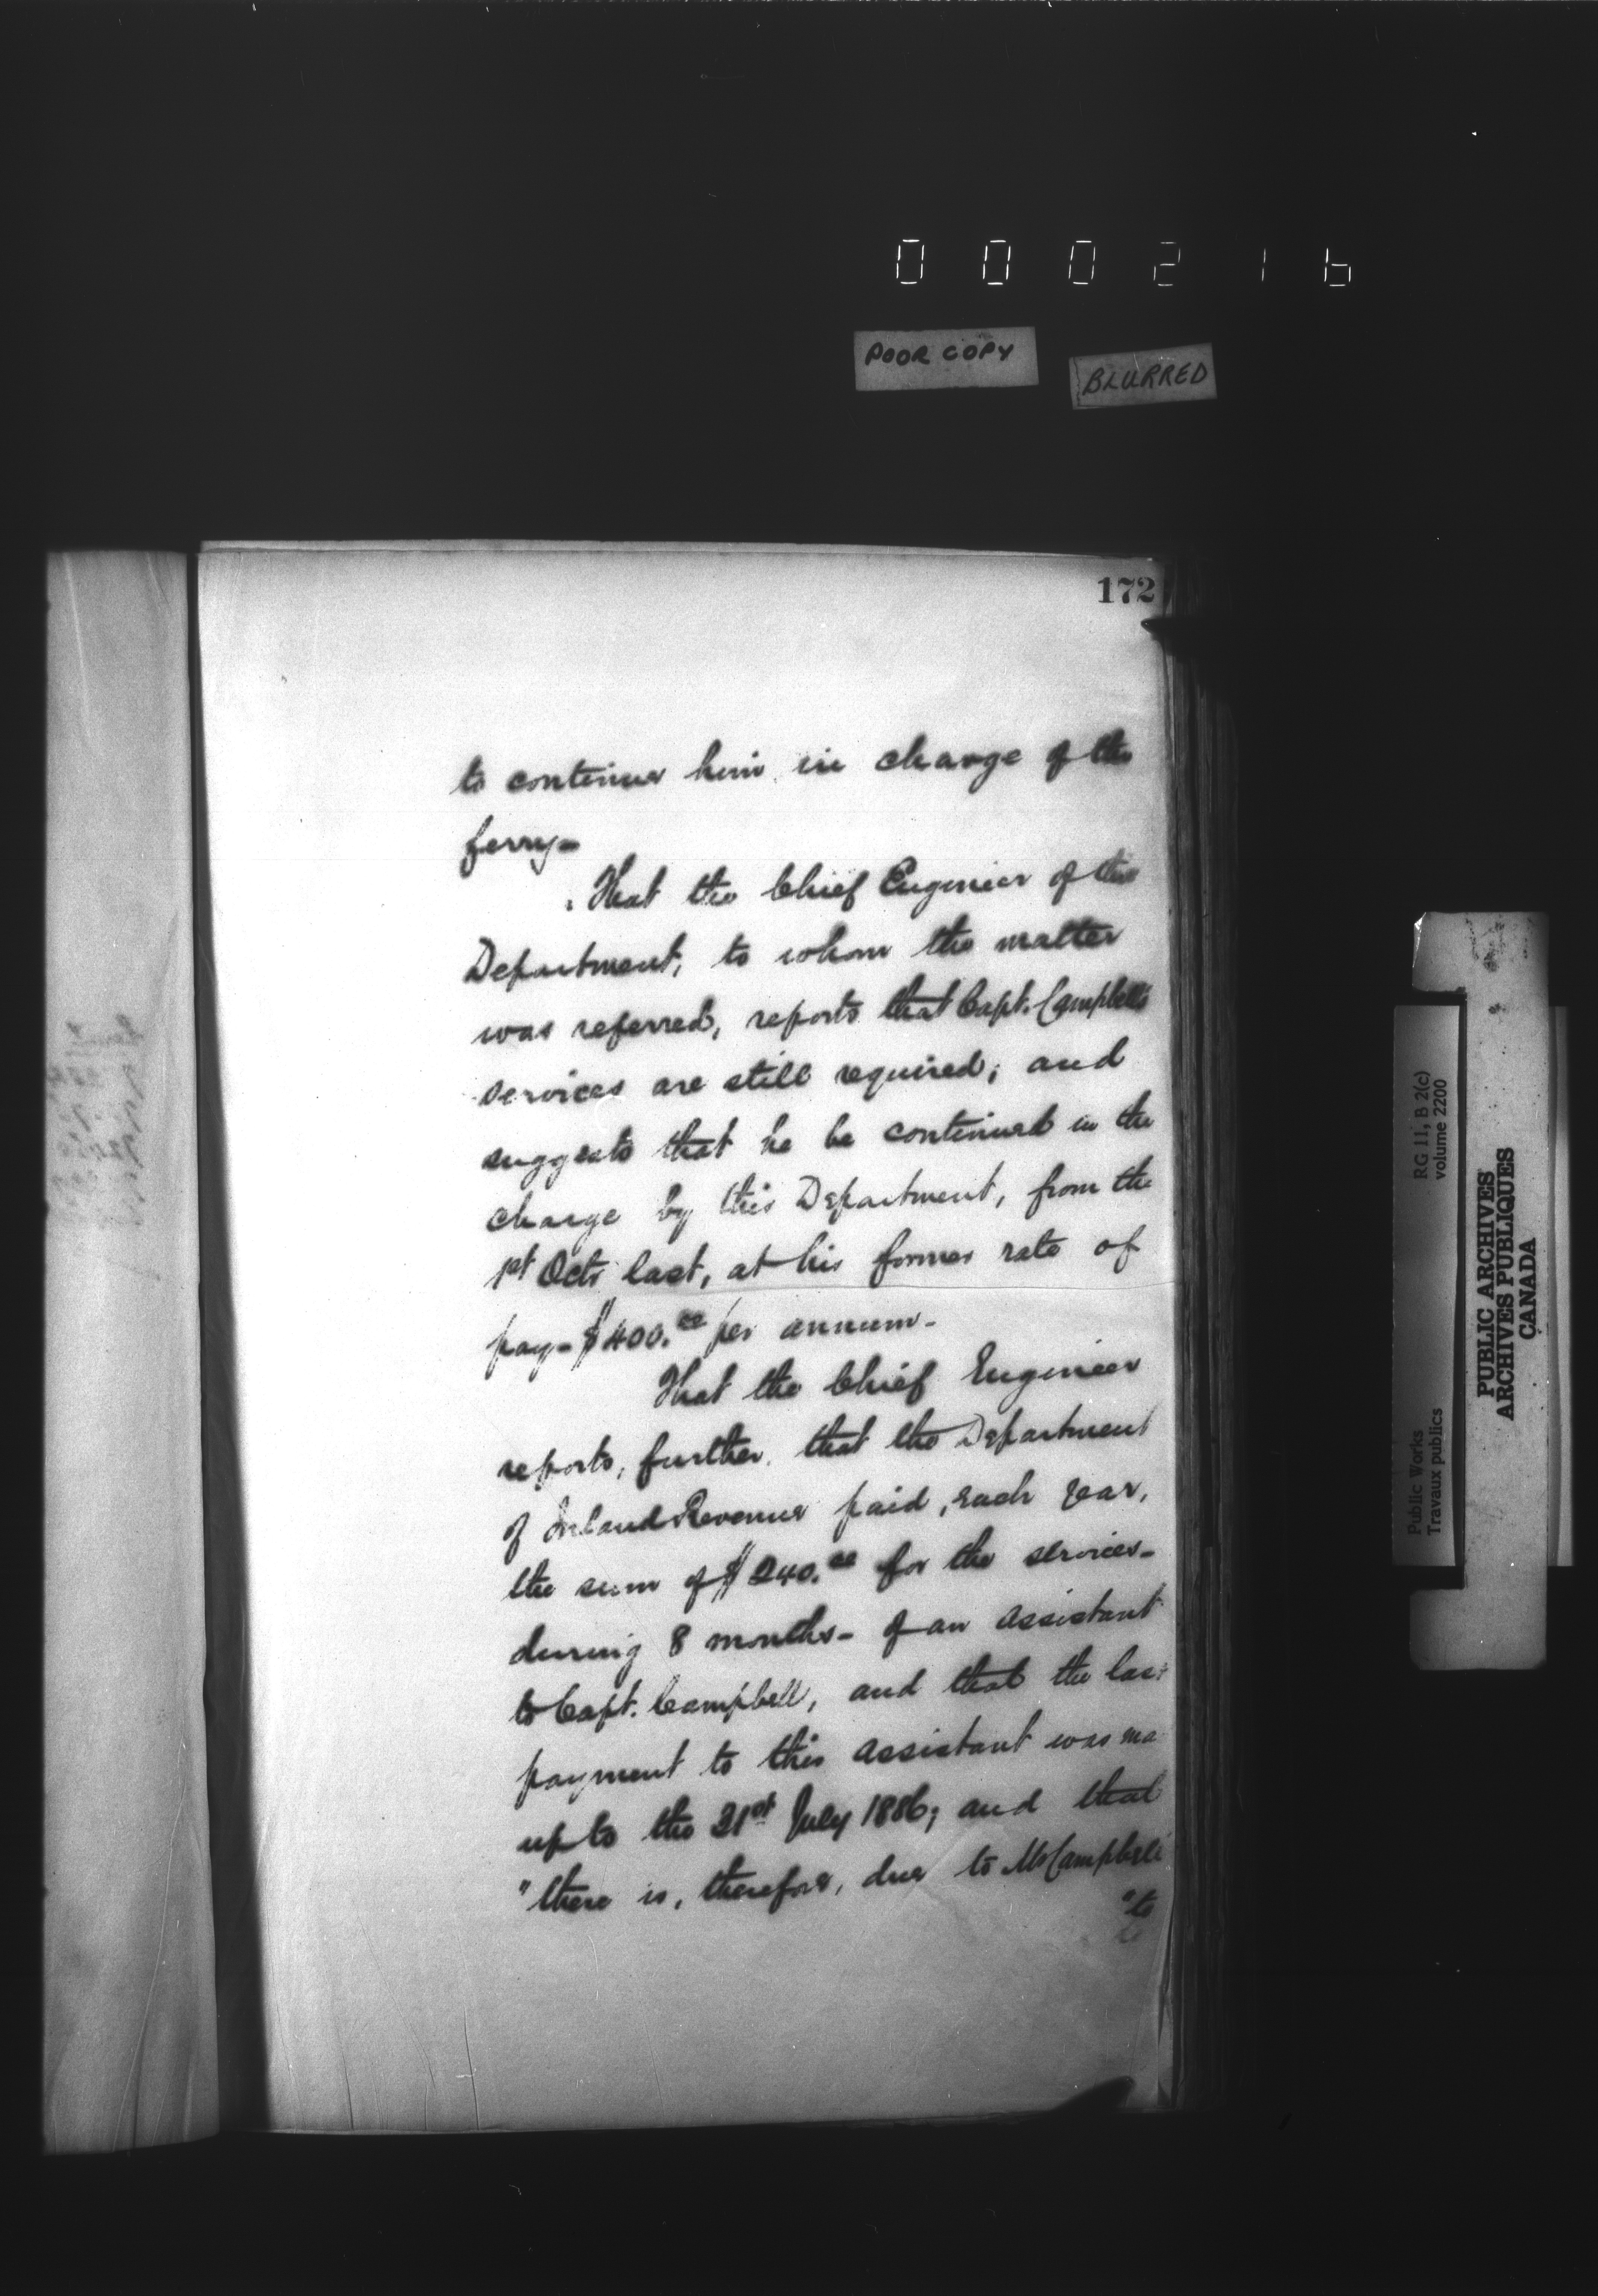 000216
POOR COPY
BLURRED
172
to continue him in charge of the
ferry-
That the Chief Engineer of this
Department, to whom the matter
was referred, reports that Capt. Campbell's
services are still required; and
suggests that he be continued in the
charge by this Department, from the
1st Octr last, at his former rate of
pay-$400.00 per annum-
That the Chief Engineer
reports, further, that the Department
of Inland Revenue paid, each year,
the sum of $240.00 for the services-
during 8 months- of an assistant
to Capt. Campbell, and that the last
payment to this assistant was ma
up to the 31st July 1886; and that
"there is, therefore, due to Mr Campbell
"to
RG 11, B 2(c)
volume 2200
Public Works
Travaux publics
PUBLIC ARCHIVES
ARCHIVES PUBLIQUES
CANADA